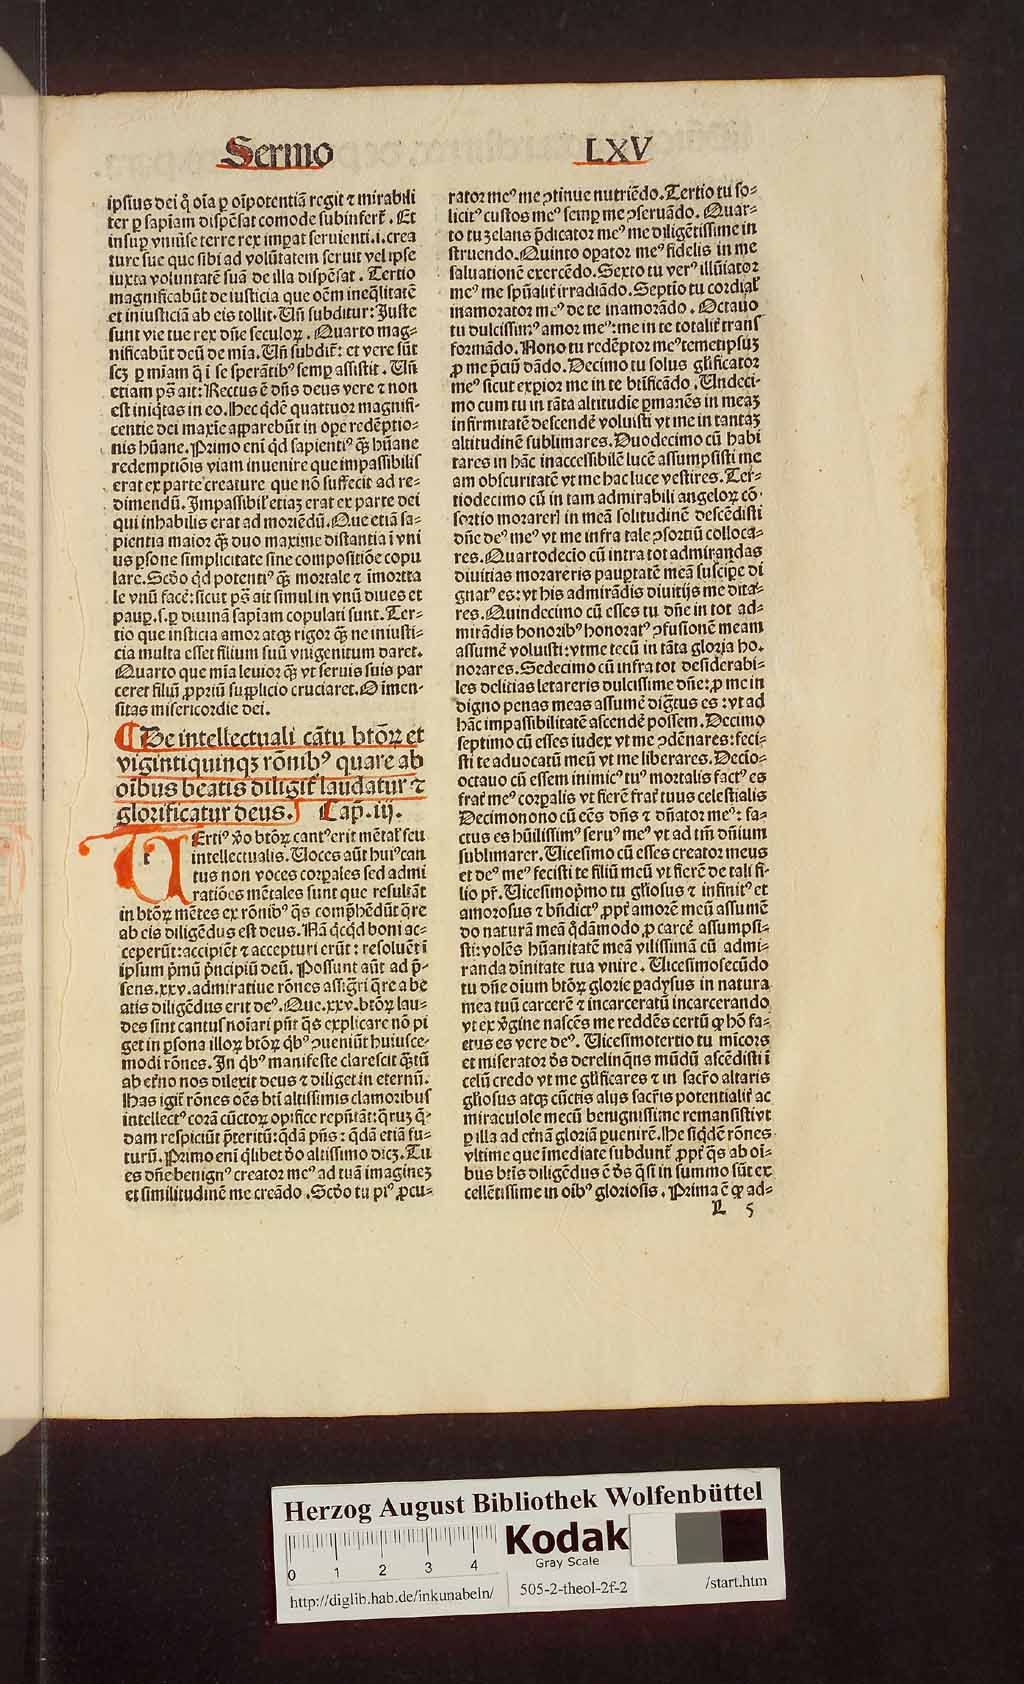 Sermo LXV
ipsius dei q̇ oīa ꝑ oīpotentiā regit ⁊ mirabili
ter ꝑ sapīam dispēsat comode subinfert̄. Et
insuꝑ vniūse terre rex imꝑat seruienti.i.crea
ture sue que sibi ad volūtatem seruit vel ipse
iuxta voluntatē suā de illa dispēsat. Tertio
magnificabūt de iusticia que oēm ineq̄litatē
et iniusticiā ab eis tollit. Vn̄ subditur: Juste
sunt vie tue rex dn̄e seculoꝝ. Quarto mag-
nificabūt deū de mīa. Vn̄ subdit̄: et vere sūt
scꝫ ꝑ mīam q̄ ī se sperātibꝰ semꝑ assistit. Vn̄
etiam ps̄ ait: Rectus ē dn̄s deus vere ⁊ non
est iniq̄tas in eo. Hec q̄dē quattuor magnifi-
centie dei maxīe apparebūt in oꝑe redēptio-
nis hūane. Primo eni q̄d sapientiꝰ q̄ꝫ hūane
redemptiōis viam inuenire que impassibilis
erat ex parte creature que nō suffecit ad re-
dimendū. Impassibil̄ etiaꝫ erat ex parte dei
qui inhabilis erat ad moriēdū. Que etiā sa-
pientia maior q̄ꝫ duo maxime distantia ī vni
us ꝑsone simplicitate sine compositiōe copu
lare. Scḋo q̄d potentiꝰ q̄ꝫ mortale ⁊ īmorta
le vnū facē: sicut ps̄ ait simul in vnū diues et
pauꝑ.s.ꝑ diuinā sapīam copulari sunt. Ter-
tio que iusticia amor atqꝫ rigor q̄ꝫ ne iniusti-
cia multa esset filium suū vnigenitum daret.
Quarto que mīa leuior q̄ꝫ vt seruis suis par
ceret filiū ꝓpriū supplicio cruciaret. O imen-
sitas misericordie dei.
De intellectuali cātu btōꝝ et
vigintiquinqꝫ rōnibꝰ quare ab
oībus beatis diligit̄ laudatur ⁊
glorificatur deus. Cap̄.iij.
t Ertiꝰ v̄o btōꝝ cantꝰ erit mētal̄ seu
intellectualis. Voces aūt huiꝰ can
tus non voces corꝑales sed admi
ratiōes mētales sunt que resultāt
in btōꝝ mētes ex rōnibꝰ q̄s comp̄hēdūt q̄re
ab eis diligēdus est deus. Nā q̄cq̄d boni ac-
ceperūt: accipiēt ⁊ accepturi erūt: resoluēt ī
ipsum p̄mū p̄ncipiū deū. Possunt aūt ad p̄-
sens.xxv.admiratiue rōnes assiḡri q̄re a be
atis diligēdus erit deꝰ. Que.xxv.btōꝝ lau-
des sint cantus noīari pn̄t q̄s explicare nō pi
get in ꝑsona illoꝝ btōꝝ q̄bꝰ ꝯueniūt huiusce-
modi rōnes. In q̄bꝰ manifeste clarescit q̄ꝫtū
ab et̄no nos dilexit deus ⁊ diliget in eternū.
Has igit̄ rōnes oēs btī altissimis clamoribus
intellectꝰ corā cūctoꝝ opifice reputāt: q̄ruꝫ q̄-
dam respiciūt p̄teritū: q̄dā pn̄s: q̄dā etiā fu-
turū. Primo eni q̄libet ḋo altissimo dicꝫ. Tu
es dn̄e benignꝰ creator meꝰ ad tuā imagineꝫ
et similitudinē me creādo. Scḋo tu piꝰ ꝓcu-
rator meꝰ me ꝯtinue nutriēdo. Tertio tu so-
licitꝰ custos meꝰ semꝑ me ꝯseruādo. Quar-
to tu zelans p̄dicator meꝰ me diligētissime in
struendo. Quinto oꝑator meꝰ fidelis in me
saluationē exercēdo. Sexto tu verꝰ illūiator
meꝰ me spūalit̄ irradiādo. Septīo tu cordial̄
inamorator meꝰ de te inamorādo. Octauo
tu dulcissimꝰ amor meꝰ: me in te totalit̄ trans
formādo. Nono tu redēptor meꝰ temetipsuꝫ
ꝓ me p̄ciū dādo. Decimo tu solus gl̄ificator
meꝰ sicut exꝑior me in te bt̄ificādo. Undeci-
mo cum tu in tāta altitudīe ꝑmanēs in meaꝫ
infirmitatē descendē voluisti vt me in tantaꝫ
altitudinē sublimares. Duodecimo cū habi
tares in hāc inaccessibilē lucē assumpsisti me
am obscuritatē vt me hac luce vestires. Ter-
tiodecimo cū in tam admirabili angeloꝝ cō-
sortio morarerl in meā solitudinē descēdisti
dn̄e deꝰ meꝰ vt me infra tale ꝯsortiū colloca-
res. Quartodecīo cū intra tot admirandas
diuitias morareris pauꝑtatē meā suscipe di
gnatꝰ es: vt his admirādis diuitijs me dita-
res. Quindecimo cū esses tu dn̄e in tot ad-
mirādis honoribꝰ honoratꝰ ꝯfusionē meam
assumē voluisti: vt me tecū in tāta gloria ho-
norares. Sedecimo cū infra tot desiderabi-
les delitias letareris dulcissime dn̄e: ꝓ me in
digno penas meas assumē dig̊tus es: vt ad
hāc impassibilitatē ascendē possem. Decimo
septimo cū esses iudex vt me ꝯdēnares: feci-
sti te aduocatū meū vt me liberares. Decio-
octauo cū essem inimicꝰ tuꝰ mortalis factꝰ es
frat̄ meꝰ corꝑalis vt fierē frat̄ tuus celestialis
Decimonono cū eēs dn̄s ⁊ dn̄ator meꝰ: fa-
ctus es hūilissimꝰ seruꝰ meꝰ vt ad tm̄ dn̄ium
sublimarer. Uicesimo cū esses creator meus
et deꝰ meꝰ fecisti te filiū meū vt fierē de tali fi-
lio pr̄. Uicesimop̄mo tu gl̄iosus ⁊ infinitꝰ et
amorosus ⁊ bn̄dictꝰ ꝓpt̄ amorē meū assumē
do naturā meā q̄dāmodo ꝓ carcē assumpsi-
sti: volēs hūanitatē meā vilissimā cū admi-
randa dīnitate tua vnire. Uicesimosecūdo
tu dn̄e oīum btōꝝ glorie ꝑadysus in natura
mea tuū carcerē ⁊ incarceratū incarcerando
vt ex v̄gine nascēs me reddēs certū ꝙ hō fa-
ctus es vere deꝰ. Uicesimotertio tu mīcors
et miserator ḋs derelinq̄ns mūdū ascēdisti ī
celū credo vt me gl̄ificares ⁊ in sacr̄o altaris
gl̄iosus atqꝫ cūctis alijs sacr̄is potentialit̄ ac
miraculole mecū benignissime remansisti vt
ꝑ illa ad et̄nā gloriā ꝑuenirē. He siq̄dē rōnes
vltime que īmediate subdunt̄ ꝓpt̄ q̄s ab oī-
bus bt̄is diligēdus ē ḋs q̄si in summo sūt ex
cellētissime in oībꝰ gloriosis. Prima ē ꝙ ad-
L 5
Herzog August Bibliothek Wolfenbüttel
0 1 2 3 4
Kodak
Gray Scale
http://diglib.hab.de/inkunabeln/ 505-2-theol-2f-2 /start.htm